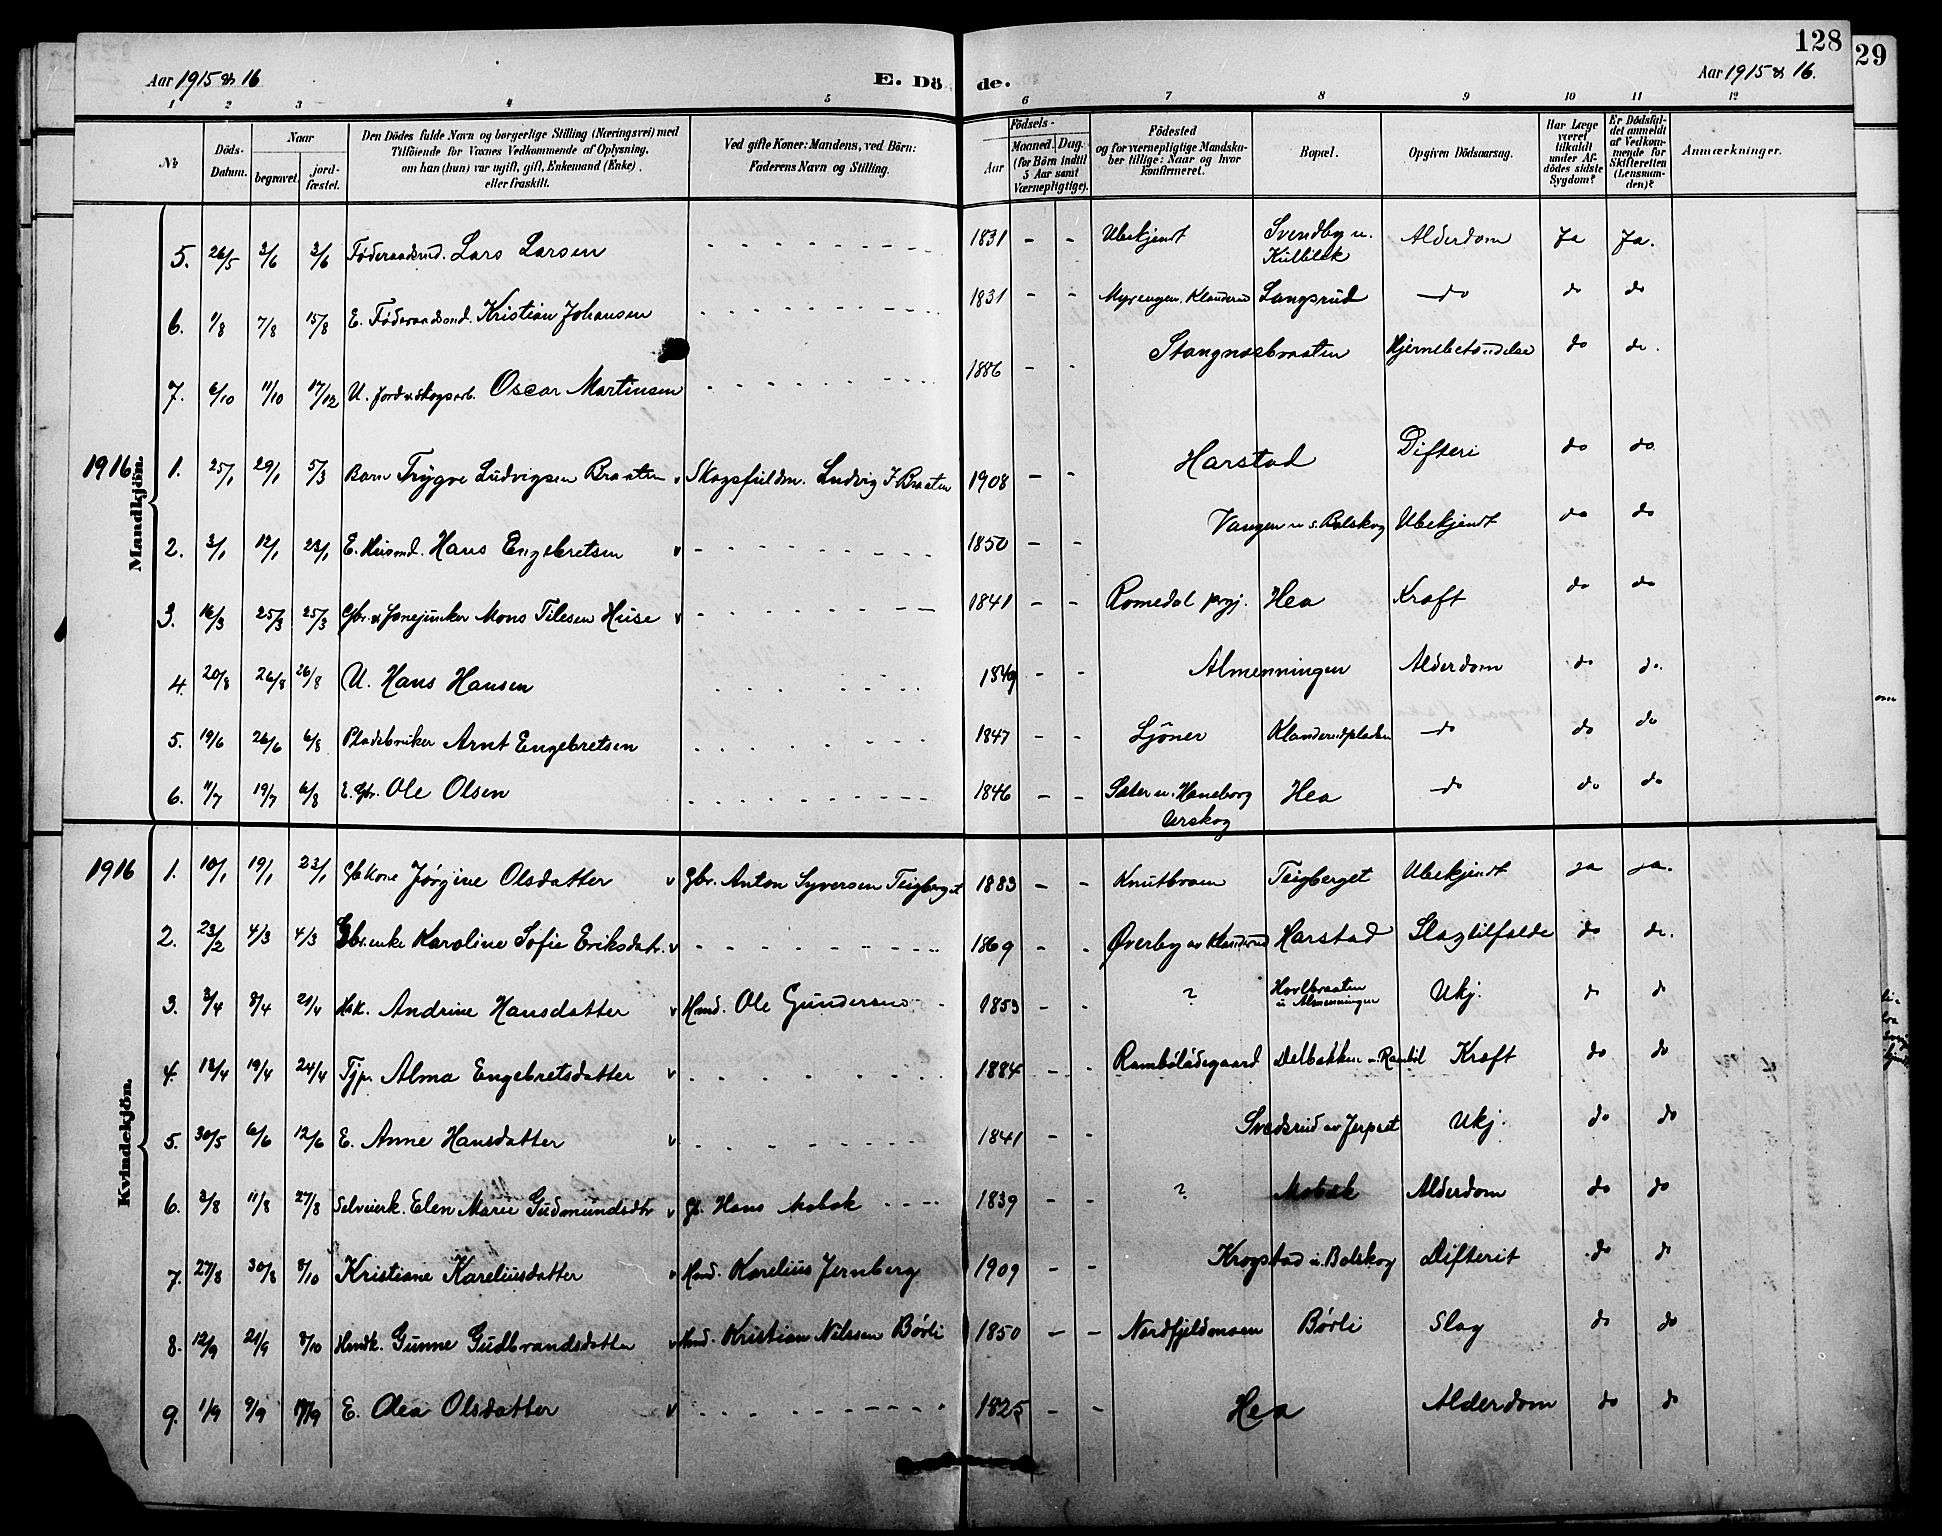 128
29
Aar 1915 & 16
E. Dö de.
Aar 1915 & 16.
1 2 3 4 5 6 7 8 9 10 11 12
No
Döds-Datum.
Naar
begravet.
jord-fæstet.
Den Dödes fulde Navn og borgerlige Stilling (Næringsvei) med
Tilföiende for Voxnes Vedkommende af Oplysning,
om han (hun) var ugift, gift, Enkemand (Enke)
eller fraskilt.
Ved gifte Koner: Mandens, ved Börn:
Faderens Navn og Stilling.
Födsels-
Aar
Maaned. Dag.
(for Börn indtil
5 Aar samt
Værnepligtige).
Födested
og for værnepligtige Mandska-
ber tillige: Naar og hvor
konfirmeret.
Bopæl.
Opgiven Dödsaarsag.
Har Læge
været
tilkaldt
under Af-
dödes sidste
Sygdom?
Er Dödsfal-
det anmeldt
af Vedkom-
mende for
Skifteretten
(Lensman-
den)?
Anmærkninger.
5. 26/5 3/6 3/6 Føderaadsmd. Lars Larsen - - - 1831 - - Ubekjendt Svendby u. Kulblik Alderdom Ja Ja.
6. 1/8 7/8 15/8 E. Føderaadsmd. Kristian Johansen - - - 1831 - - Myrengen, Klanderud Langsrud do do do
7. 6/10 11/10 17/12 U. Jord & skogsarb. Oscar Martinsen - - - 1886 - - Stangnesbraaten Hjernebetændelse do do.
1916
Mandkjön.
1. 25/1 29/1 5/3 Barn Trygve Ludvigsen Braaten v Skogsfuldm. Ludvig J Braaten 1908 - - Harstad Difteri do do
2. 3/1 12/1 23/1 E. Husmd. Hans Engebretsen v - - - 1850 - - Vangen u s. Bolskog Ubekjendt do do
3. 16/3 25/3 25/3 Gbr. & Mons Tilesen Huse v - - - 1841 - - Romedal prgj. Hea Kræft do do
4. 20/8 26/8 26/8 U. Hans Hansen - - - 1849 - - Almenningen Alderdom do do.
5. 19/6 26/6 6/8 Pladsbruker Arnt Engebretsen - - - 1847 - - Ljöner Klanderudpladsen do do do
6. 11/7 19/7 6/8 E. Gbr. Ole Olsen - - - 1846 - - Sæter u. Haneborg Urskog Hea do do do
1916
Kvindekjön.
1. 10/1 19/1 23/1 Gbkone Jørgine Olsdatter v Gbr. Anton Syversen Teigberget 1883 - - Knutbraen Teigberget Ubekjendt ja ja.
2. 23/2 4/3 4/3 Gbr.enke Karoline Sofie Eriksdatr. v - - - 1869 - - Øverby av Klanderud Harstad Slagtilfælde do do.
3. 3/4 8/4 21/4 Hsk. Andrine Hansdatter v Hmd. Ole Gundersen - 1853 - - ? Hovlbraaten u Almenningen Ukj. do do
4. 13/4 19/4 24/4 Tjp. Alma Engebretsdatter v - - - 1884 - - Rambølødegaard Delbækken u Rambøl Kræft do do
5. 30/5 6/6 12/6 E. Anne Hansdatter v - - - 1841 - - Svedsrud av Jerpset Ukj. do do
6. 3/8 11/8 27/8 Selveierk. Elen Marie Gudmundsdtr v G. Hans Mobæk - - - 1839 - - ? Mobæk Alderdom do do
7. 27/8 30/8 8/10 Kristiane Kareliusdatter v Hmd. Karelius Jernberg 1909 - - Krogstad u. Bolskog Difterit do do
8. 12/9 21/9 8/10 Hmdk. Gunne Gudbrandsdatter v Hmd. Kristian Nilssen Børli 1850 - - Nordfjeldmoen Børli Slag do do
9. 1/9 9/9 19/9 E. Olea Olsdatter v - - - 1825 - - Hea Alderdom do do